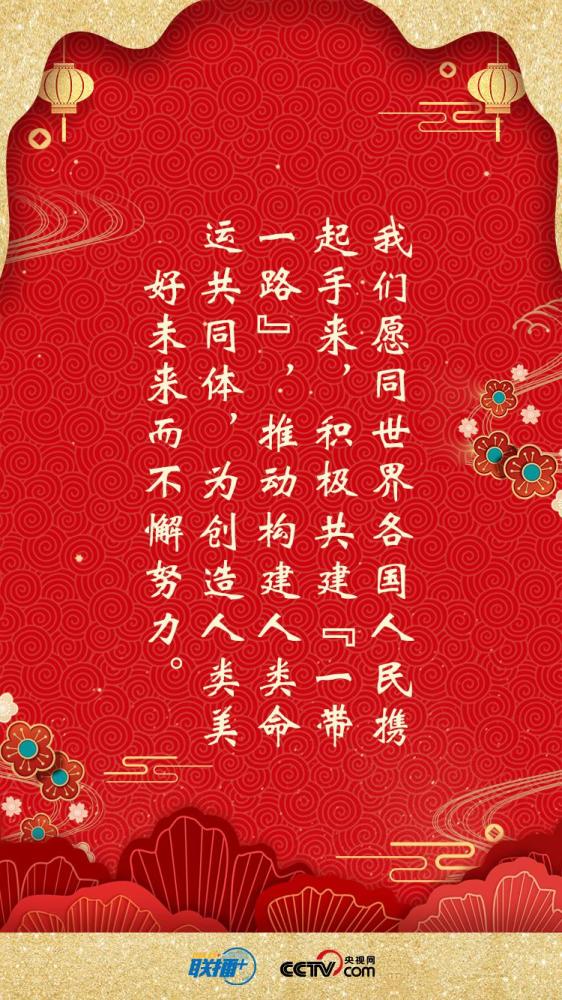 我们愿同世界各国人民携
起手来，积极共建『一带
一路』，推动构建人类命
运共同体，为创造人类美
好未来而不懈努力。
联播+
CCTV.com 央视网